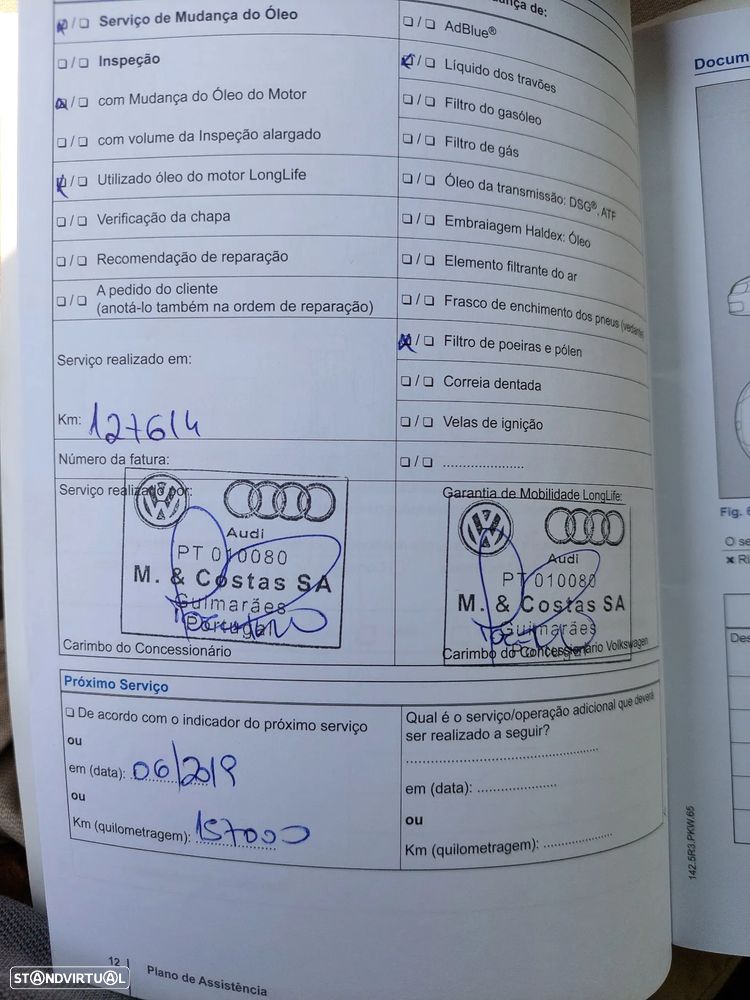 Serviço de Mudança do Óleo
Inspeção
com Mudança do Óleo do Motor
com volume da Inspeção alargado
Utilizado óleo do motor LongLife
Verificação da chapa
Recomendação de reparação
A pedido do cliente
(anotá-lo também na ordem de reparação)
Serviço realizado em:
Km: 127614
Número da fatura:
de:
AdBlue®
Líquido dos travões
Filtro do gasóleo
Filtro de gás
Óleo da transmissão: DSG®, ATF
Embraiagem Haldex: Óleo
Elemento filtrante do ar
Frasco de enchimento dos pneus
Filtro de poeiras e pólen
Correia dentada
Velas de ignição
.....................
Serviço realizado por:
Audi
PT 010080
M. & Costas SA
Guimarães
Portugal
Carimbo do Concessionário
Garantia de Mobilidade LongLife:
Audi
PT 010080
M. & Costas SA
Guimarães
Portugal
Carimbo do Concessionário Volkswagen
Próximo Serviço
De acordo com o indicador do próximo serviço
ou
em (data): 06/2019
ou
Km (quilometragem): 157000
Qual é o serviço/operação adicional que deverá
ser realizado a seguir?
em (data): ...................
ou
Km (quilometragem): ................
12 | Plano de Assistência
142.5R3.PKW.65
Docum
Fig. 6
O se
Des
STANDVIRTUAL